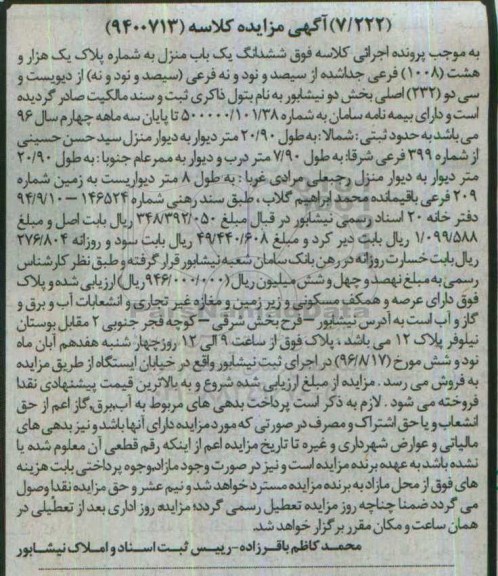 (۷/۲۲۲) آگهی مزایده کلاسه (۹۴۰۰۷۱۳)
به موجب پرونده اجرائی کلاسه فوق ششدانگ یک باب منزل به شماره پلاک یک هزار و
هشت (۱۰۰۸) فرعی جداشده از سیصد و نود و نه فرعی (سیصد و نود و نه) از دویست و
سی دو (۲۳۲) اصلی بخش دو نیشابور به نام بتول ذاکری ثبت و سند مالکیت صادر گردیده
است و دارای بیمه نامه سامان به شماره ۵۰۰۰۰۰/۱۰۱/۳۸ تا پایان سه ماهه چهارم سال ۹۶
می باشد به حدود ثبتی: شمالا: به طول ۲۰/۹۰ متر دیوار به دیوار منزل سید حسن حسینی
از شماره ۳۹۹ فرعی شرقا: به طول ۷/۹۰ متر درب و دیوار به ممر عام جنوبا: به طول ۲۰/۹۰
متر دیوار به دیوار منزل رجبعلی مرادی غربا: به طول ۸ متر دیواریست به زمین شماره
۲۰۹ فرعی باقیمانده محمد ابراهیم گلاب، طبق سند رهنی شماره ۱۴۶۵۲۴ – ۹۴/۹/۱۰
دفتر خانه ۲۰ اسناد رسمی نیشابور در قبال مبلغ ۳۴۸/۳۹۲/۰۵۰ ریال بابت اصل و مبلغ
۱/۰۹۹/۵۸۸ ریال بابت دیر کرد و مبلغ ۴۹/۴۴۰/۶۰۸ ریال بابت سود و روزانه ۲۷۶/۸۰۴
ریال بابت خسارت روزانه در رهن بانک سامان شعبه نیشابور قرار گرفته و طبق نظر کارشناس
رسمی به مبلغ نهصد و چهل و شش میلیون ریال (۹۴۶/۰۰۰/۰۰۰ ریال) ارزیابی شده و پلاک
فوق دارای عرصه و همکف مسکونی و زیر زمین و مغازه غیر تجاری و انشعابات آب و برق و
گاز و آب است به آدرس نیشابور – فرح بخش شرقی – کوچه فجر جنوبی ۲ مقابل بوستان
نیلوفر پلاک ۱۲ می باشد، پلاک فوق از ساعت ۹ الی ۱۲ روز چهار شنبه هفدهم آبان ماه
نود و شش مورخ (۹۶/۸/۱۷) در اجرای ثبت نیشابور واقع در خیابان ایستگاه از طریق مزایده
به فروش می رسد. مزایده از مبلغ ارزیابی شده شروع و به بالاترین قیمت پیشنهادی نقدا
فروخته می شود. لازم به ذکر است پرداخت بدهی های مربوط به آب،برق،گاز اعم از حق
انشعاب و یا حق اشتراک و مصرف در صورتی که مورد مزایده دارای آنها باشد و نیز بدهی های
مالیاتی و عوارض شهرداری و غیره تا تاریخ مزایده اعم از اینکه رقم قطعی آن معلوم شده یا
نشده باشد به عهده برنده مزایده است و نیز در صورت وجود مازاد وجوه پرداختی بابت هزینه
های فوق از محل مازاد به برنده مزایده مسترد خواهد شد و نیم عشر و حق مزایده نقدا وصول
می گردد ضمنا چناچه روز مزایده تعطیل رسمی گردد؛ مزایده روز اداری بعد از تعطیلی در
همان ساعت و مکان مقرر برگزار خواهد شد.
محمد کاظم باقرزاده – رییس ثبت اسناد و املاک نیشابور
ParsNamadData